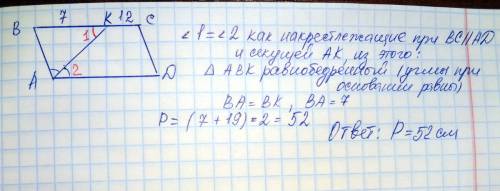 B 7 K 12 C
1
2
A D
∠1=∠2 как накрестлежащие при BC||AD
и секущей AK, из этого:
Δ ABK равнобедренный (углы при
основании равны)
BA=BK, BA=7
P=(7+19)·2=52
Ответ: P=52см